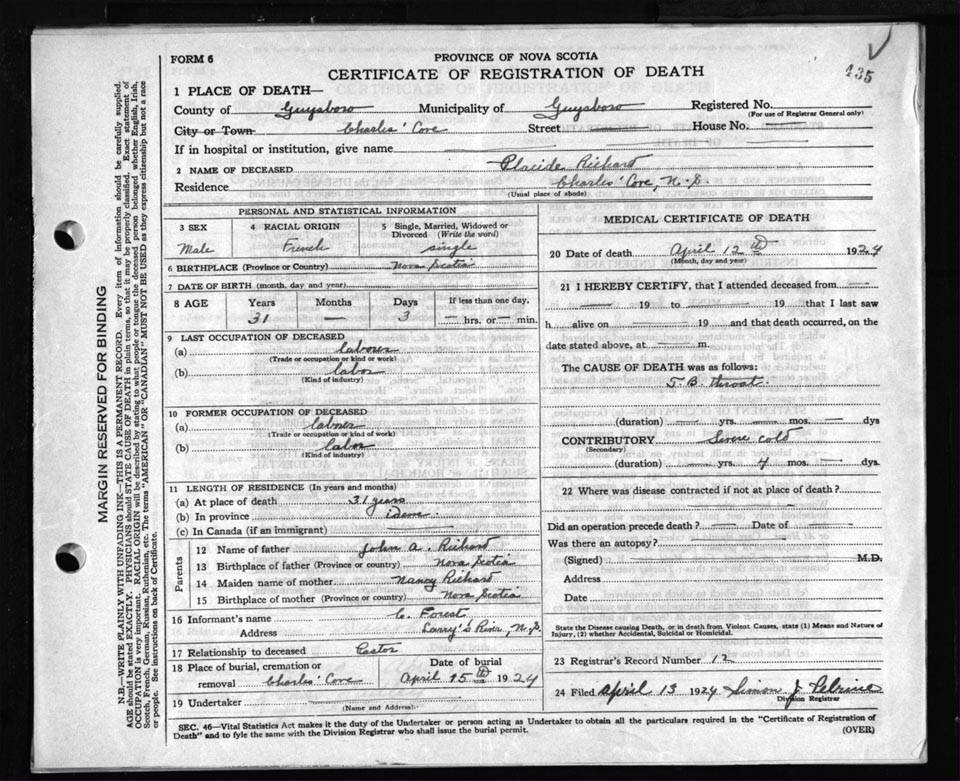 435
FORM 6
PROVINCE OF NOVA SCOTIA
CERTIFICATE OF REGISTRATION OF DEATH
1 PLACE OF DEATH—
County of Guysboro Municipality of Guysboro Registered No.
(For use of Registrar General only)
City or Town Charlis' Cove Street — House No. —
If in hospital or institution, give name —
2 NAME OF DECEASED Placide Richard
Residence Charlis' Cove, N.S.
(Usual place of abode)
PERSONAL AND STATISTICAL INFORMATION
3 SEX 4 RACIAL ORIGIN 5 Single, Married, Widowed or Divorced (Write the word)
Male French single
6 BIRTHPLACE (Province or Country) Nova Scotia
7 DATE OF BIRTH (month, day, and year)
8 AGE Years Months Days If less than one day,
31 — 3 — hrs. or — min.
9 LAST OCCUPATION OF DECEASED
(a) laborer
(Trade or occupation or kind or work)
(b) labor
(Kind of industry)
10 FORMER OCCUPATION OF DECEASED
(a) laborer
(Trade or occupation or kind of work)
(b) labor
(Kind of industry)
11 LENGTH OF RESIDENCE (In years and months)
(a) At place of death 31 years
(b) In province idem
(c) In Canada (if an immigrant)
Parents
12 Name of father John A. Richard
13 Birthplace of father (Province or country) Nova Scotia
14 Maiden name of mother Nancy Richard
15 Birthplace of mother (Province or country) Nova Scotia
16 Informant's name C. Forest
Address Larry's River, N.S.
17 Relationship to deceased Pastor
18 Place of burial, cremation or removal Charlis' Cove Date of burial April 15th 1924
19 Undertaker —
(Name and Address)
MEDICAL CERTIFICATE OF DEATH
20 Date of death April 12th 1924
(Month, day and year)
21 I HEREBY CERTIFY, that I attended deceased from —
— 19 — to — 19 — that I last saw
h — alive on — 19 — and that death occurred, on the
date stated above, at — m.
The CAUSE OF DEATH was as follows:
T.B. throat.
(duration) — yrs. — mos. — dys
CONTRIBUTORY Severe cold
(Secondary)
(duration) — yrs. 4 mos. — dys.
22 Where was disease contracted if not at place of death? —
Did an operation precede death? — Date of —
Was there an autopsy? —
(Signed) M.D.
Address
Date
State the Disease causing Death, or in death from Violent Causes, state (1) Means and Nature of
Injury, (2) whether Accidental, Suicidal or Homicidal.
23 Registrar's Record Number 12
24 Filed April 13 1924 Simon J. Pelrine
Division Registrar
SEC. 46—Vital Statistics Act makes it the duty of the Undertaker or person acting as Undertaker to obtain all the particulars required in the "Certificate of Registration of
Death" and to fyle the same with the Division Registrar who shall issue the burial permit.
(OVER)
MARGIN RESERVED FOR BINDING
N.B.—WRITE PLAINLY WITH UNFADING INK—THIS IS A PERMANENT RECORD. Every item of information should be carefully supplied.
AGE should be stated EXACTLY. PHYSICIANS should STATE CAUSE OF DEATH in plain terms, so that it may be properly classified. Exact statement of
OCCUPATION is very important. RACIAL ORIGIN will be described by stating to what people or tongue the deceased person belonged whether English, Irish,
Scotch, French, German, Russian, Ruthenian, etc. The terms "AMERICAN" OR "CANADIAN" MUST NOT BE USED as they express citizenship but not a race
or people. See instructions on back of Certificate.